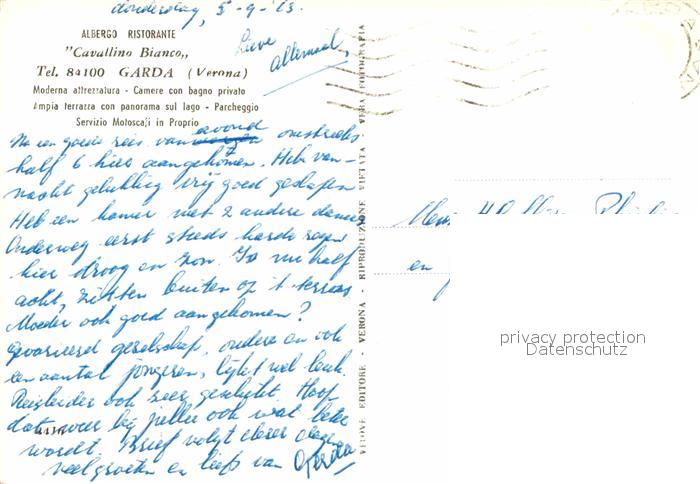 donderdag, 5-9-
ALBERGO RISTORANTE
"Cavallino Bianco„
Tel. 84100 GARDA (Verona)
Moderna attrezzatura - Camere con bagno privato
Ampia terrazza con panorama sul lago - Parcheggio
Servizio Motoscafi in Proprio
Lieve
allemaal,
Na een goede reis van avond omstreeks
half 6 hier aangekomen. Heb van-
nacht gelukkig vrij goed geslapen
Heb een kamer met 2 andere dames
Onderweg eerst steeds harde regen
hier droog en zon. Is nu half
acht, zitten buiten op 't terras.
Moeder ook goed aangekomen?
Gevarieerd gezelschap, oudere en ook
een aantal jongeren, lijkt wel leuk.
Reisleider ook zeer geschikt. Hoop
dat weer bij jullie ook wat beter
wordt. Brief volgt dezer dagen
veel groeten en liefs van Gerda
VEDOVE EDITORE - VERONA - RIPRODUZIONE VIETATA - VERA FOTOGRAFIA
en
privacy protection
Datenschutz